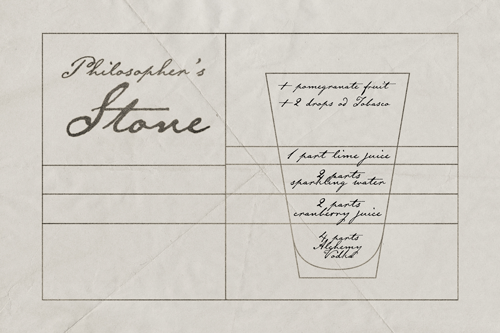 Philosopher's
Stone
+ pomegranate fruit
+ 2 drops od Tobasco
1 part lime juice
2 parts
sparkling water
2 parts
cranberry juice
4 parts
Alchemy
Vodka